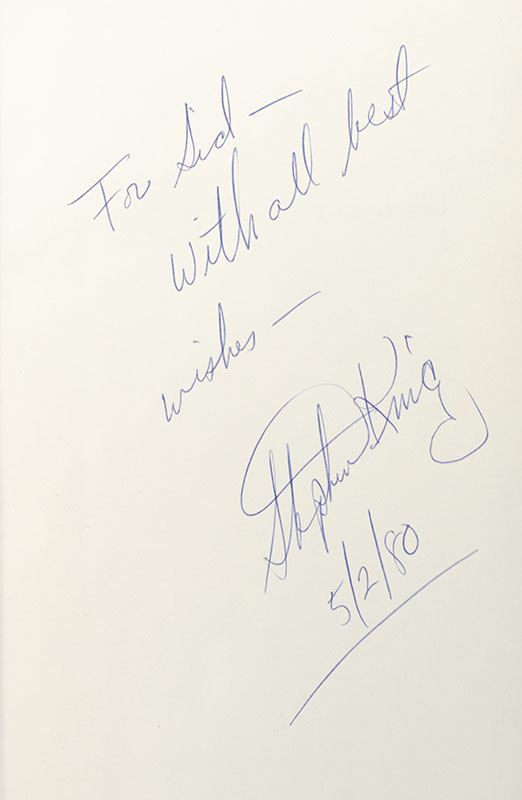 For Sid —
With all best
wishes —
Stephen King
5/2/80